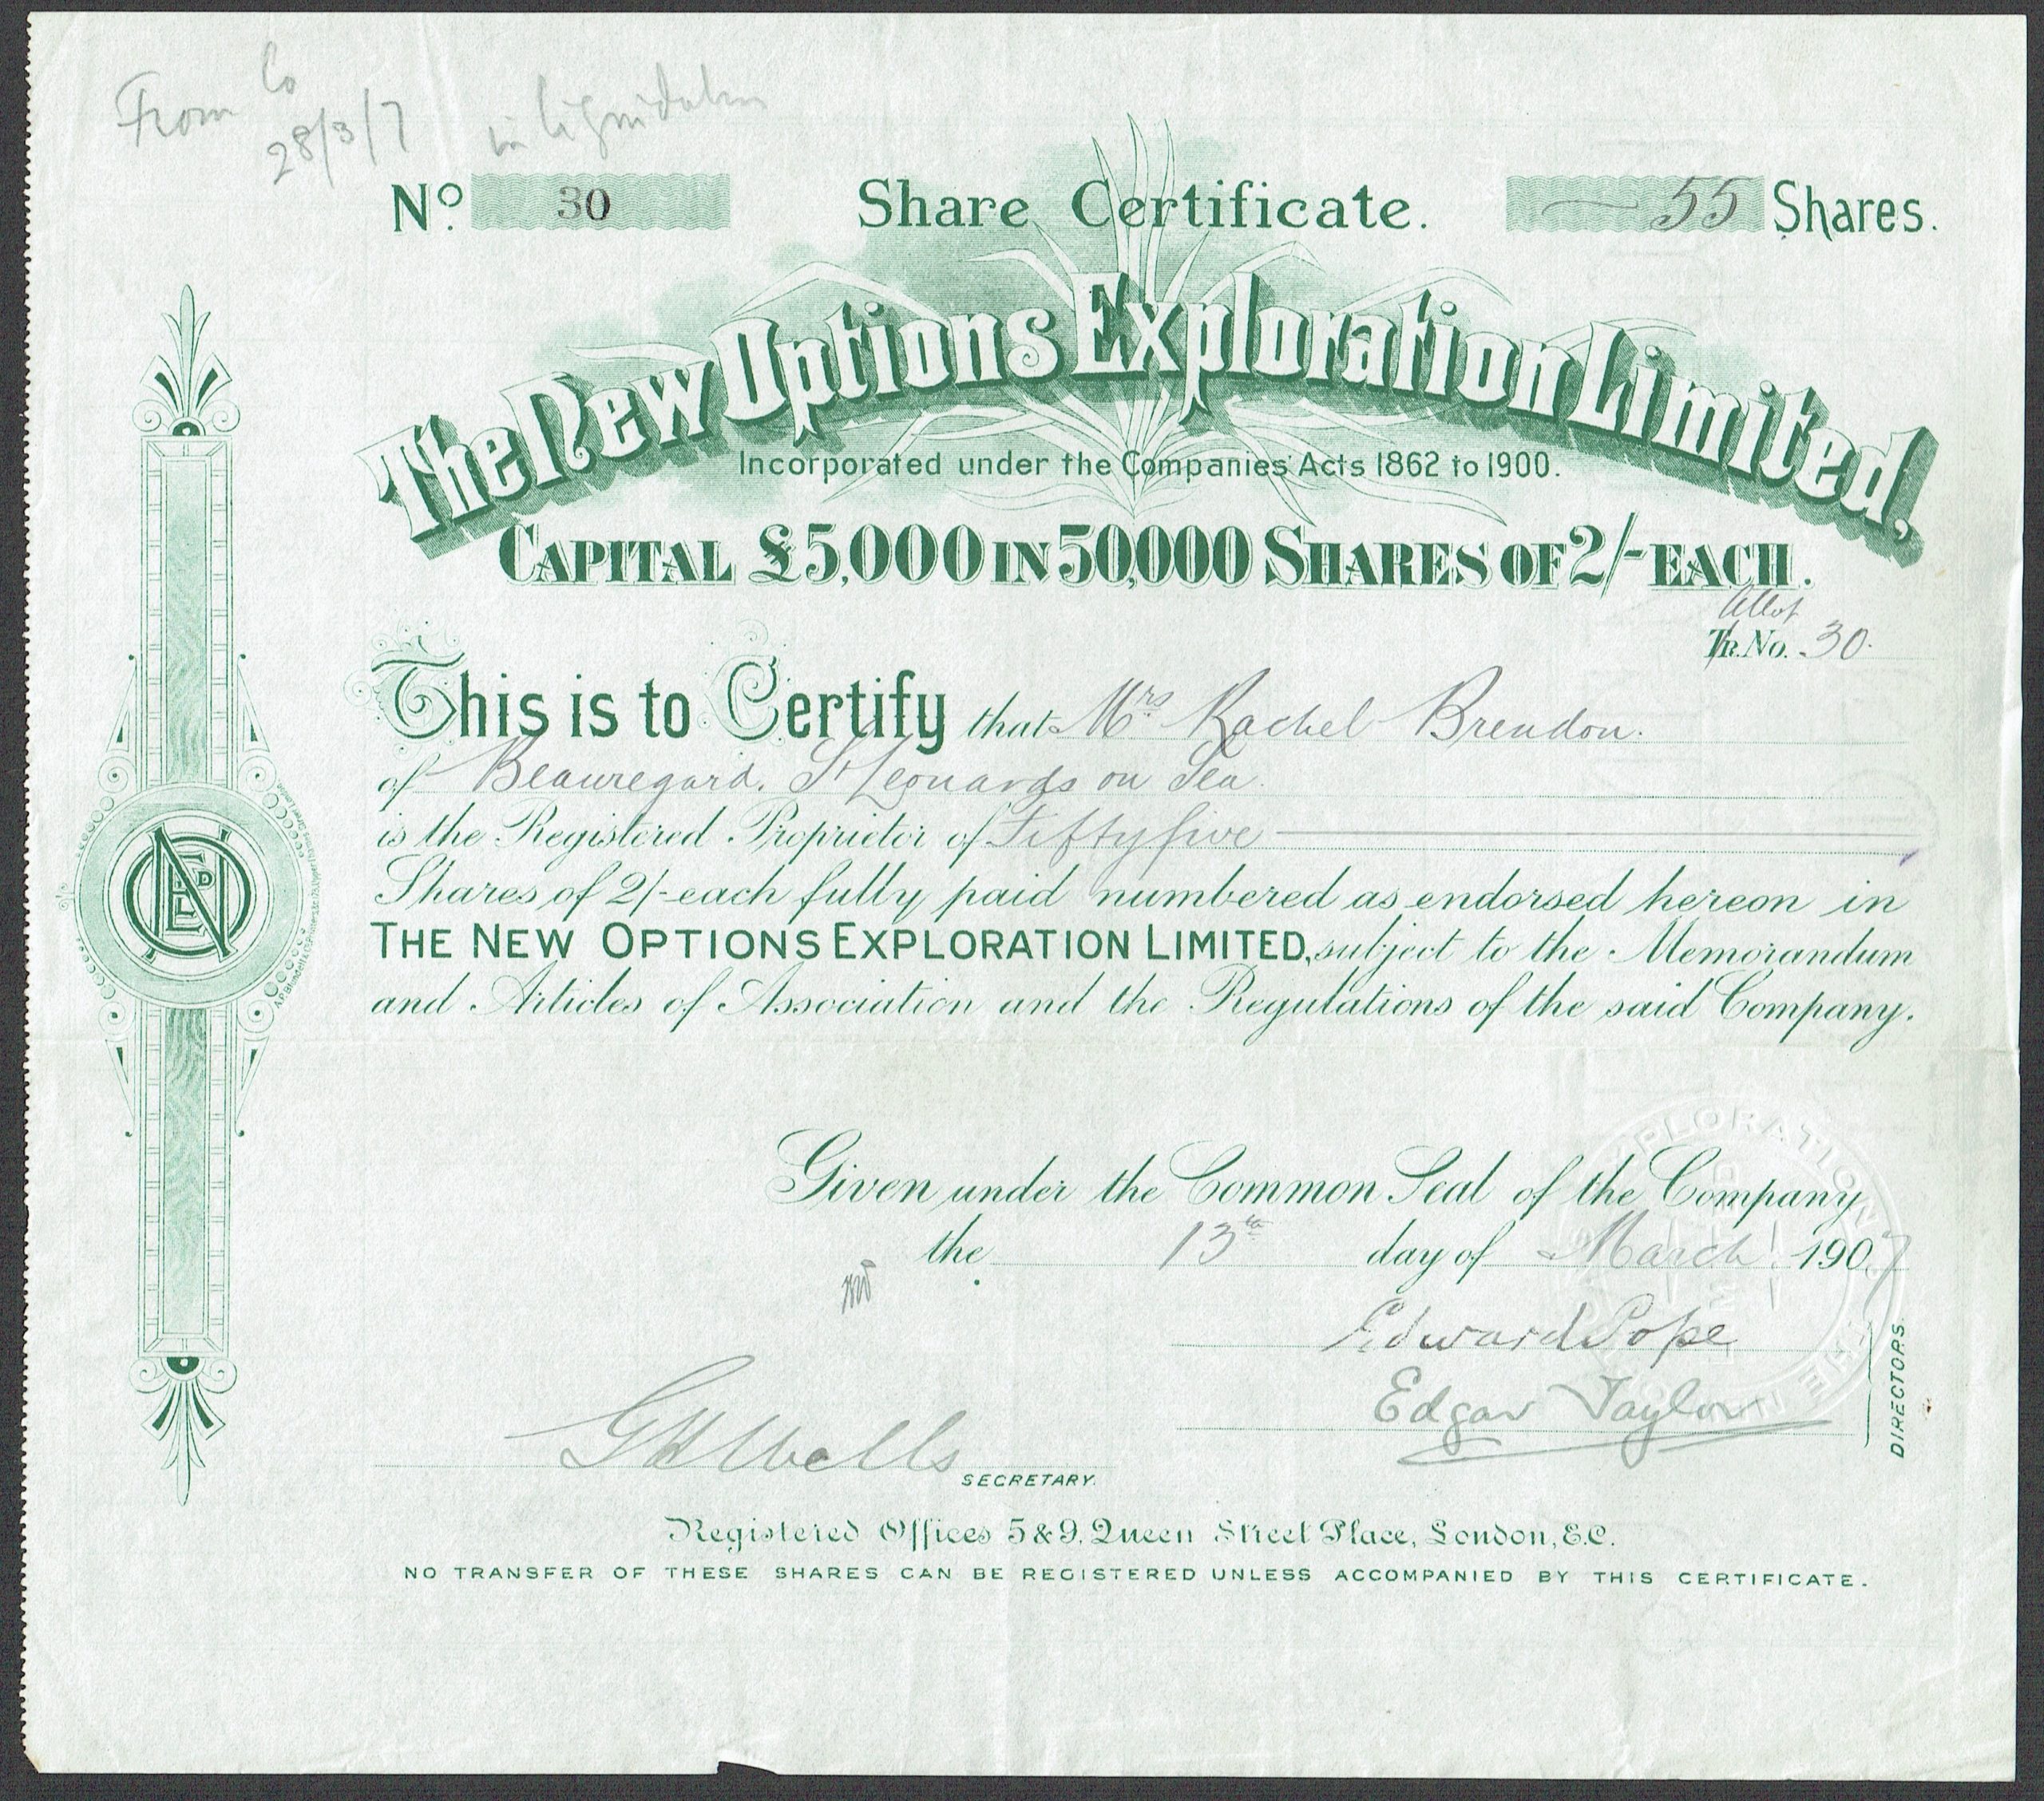 From Co
28/3/7
in liquidation
No. 30 Share Certificate. 55 Shares.
The New Options Exploration Limited,
Incorporated under the Companies Acts 1862 to 1900.
CAPITAL £5,000 IN 50,000 SHARES OF 2/- EACH.
Allot
TR. No. 30.
This is to Certify that Mrs Rachel Brendon.
of Beauregard. St Leonards on Sea.
is the Registered Proprietor of Fifty five
Shares of 2/- each fully paid numbered as endorsed hereon in
THE NEW OPTIONS EXPLORATION LIMITED, subject to the Memorandum
and Articles of Association and the Regulations of the said Company.
NOELD
Given under the Common Seal of the Company
the 13th day of March 1907
Edward Pope
Edgar Taylor
DIRECTORS.
G H Wells
SECRETARY.
Registered Offices 5 & 9, Queen Street Place, London, E.C.
NO TRANSFER OF THESE SHARES CAN BE REGISTERED UNLESS ACCOMPANIED BY THIS CERTIFICATE.